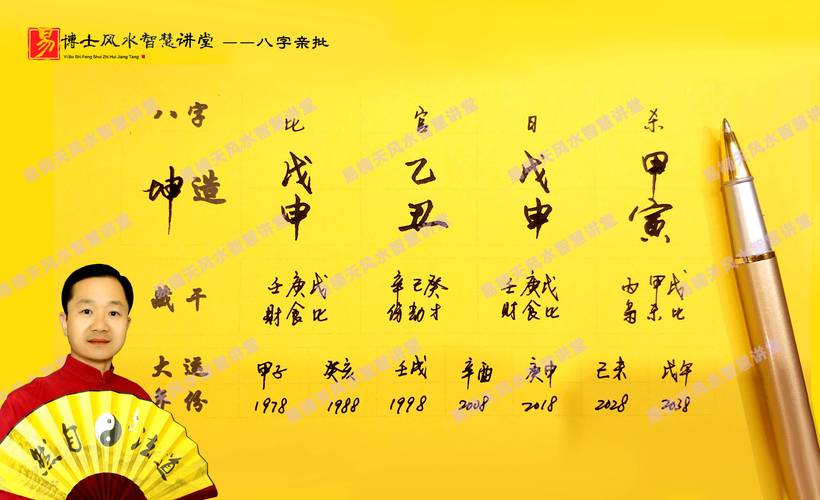 易 博士风水智慧讲堂 ——八字亲批
Yi Bo Shi Feng Shui Zhi Hui Jiang Tang
八字 比 官 日 杀
坤造 戊 乙 戊 甲
申 丑 申 寅
藏干 壬庚戊 辛己癸 壬庚戊 丙甲戊
财食比 伤劫才 财食比 枭杀比
大运 甲子 癸亥 壬戌 辛酉 庚申 己未 戊午
年份 1978 1988 1998 2008 2018 2028 2038
然自法道